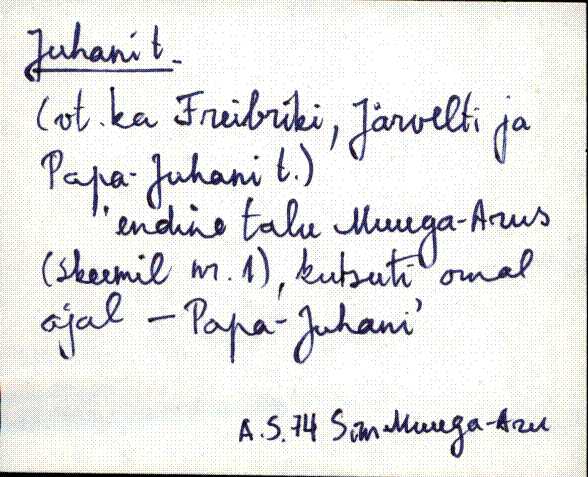 Juhani t.
(vt. ka Freibriki, Järvelti ja
Papa-Juhani t.)
'endine talu Muuga-Arus
(skeemil nr. 1), kutsuti omal
ajal – Papa-Juhani'
A.S. 74 Sim Muuga-Aru